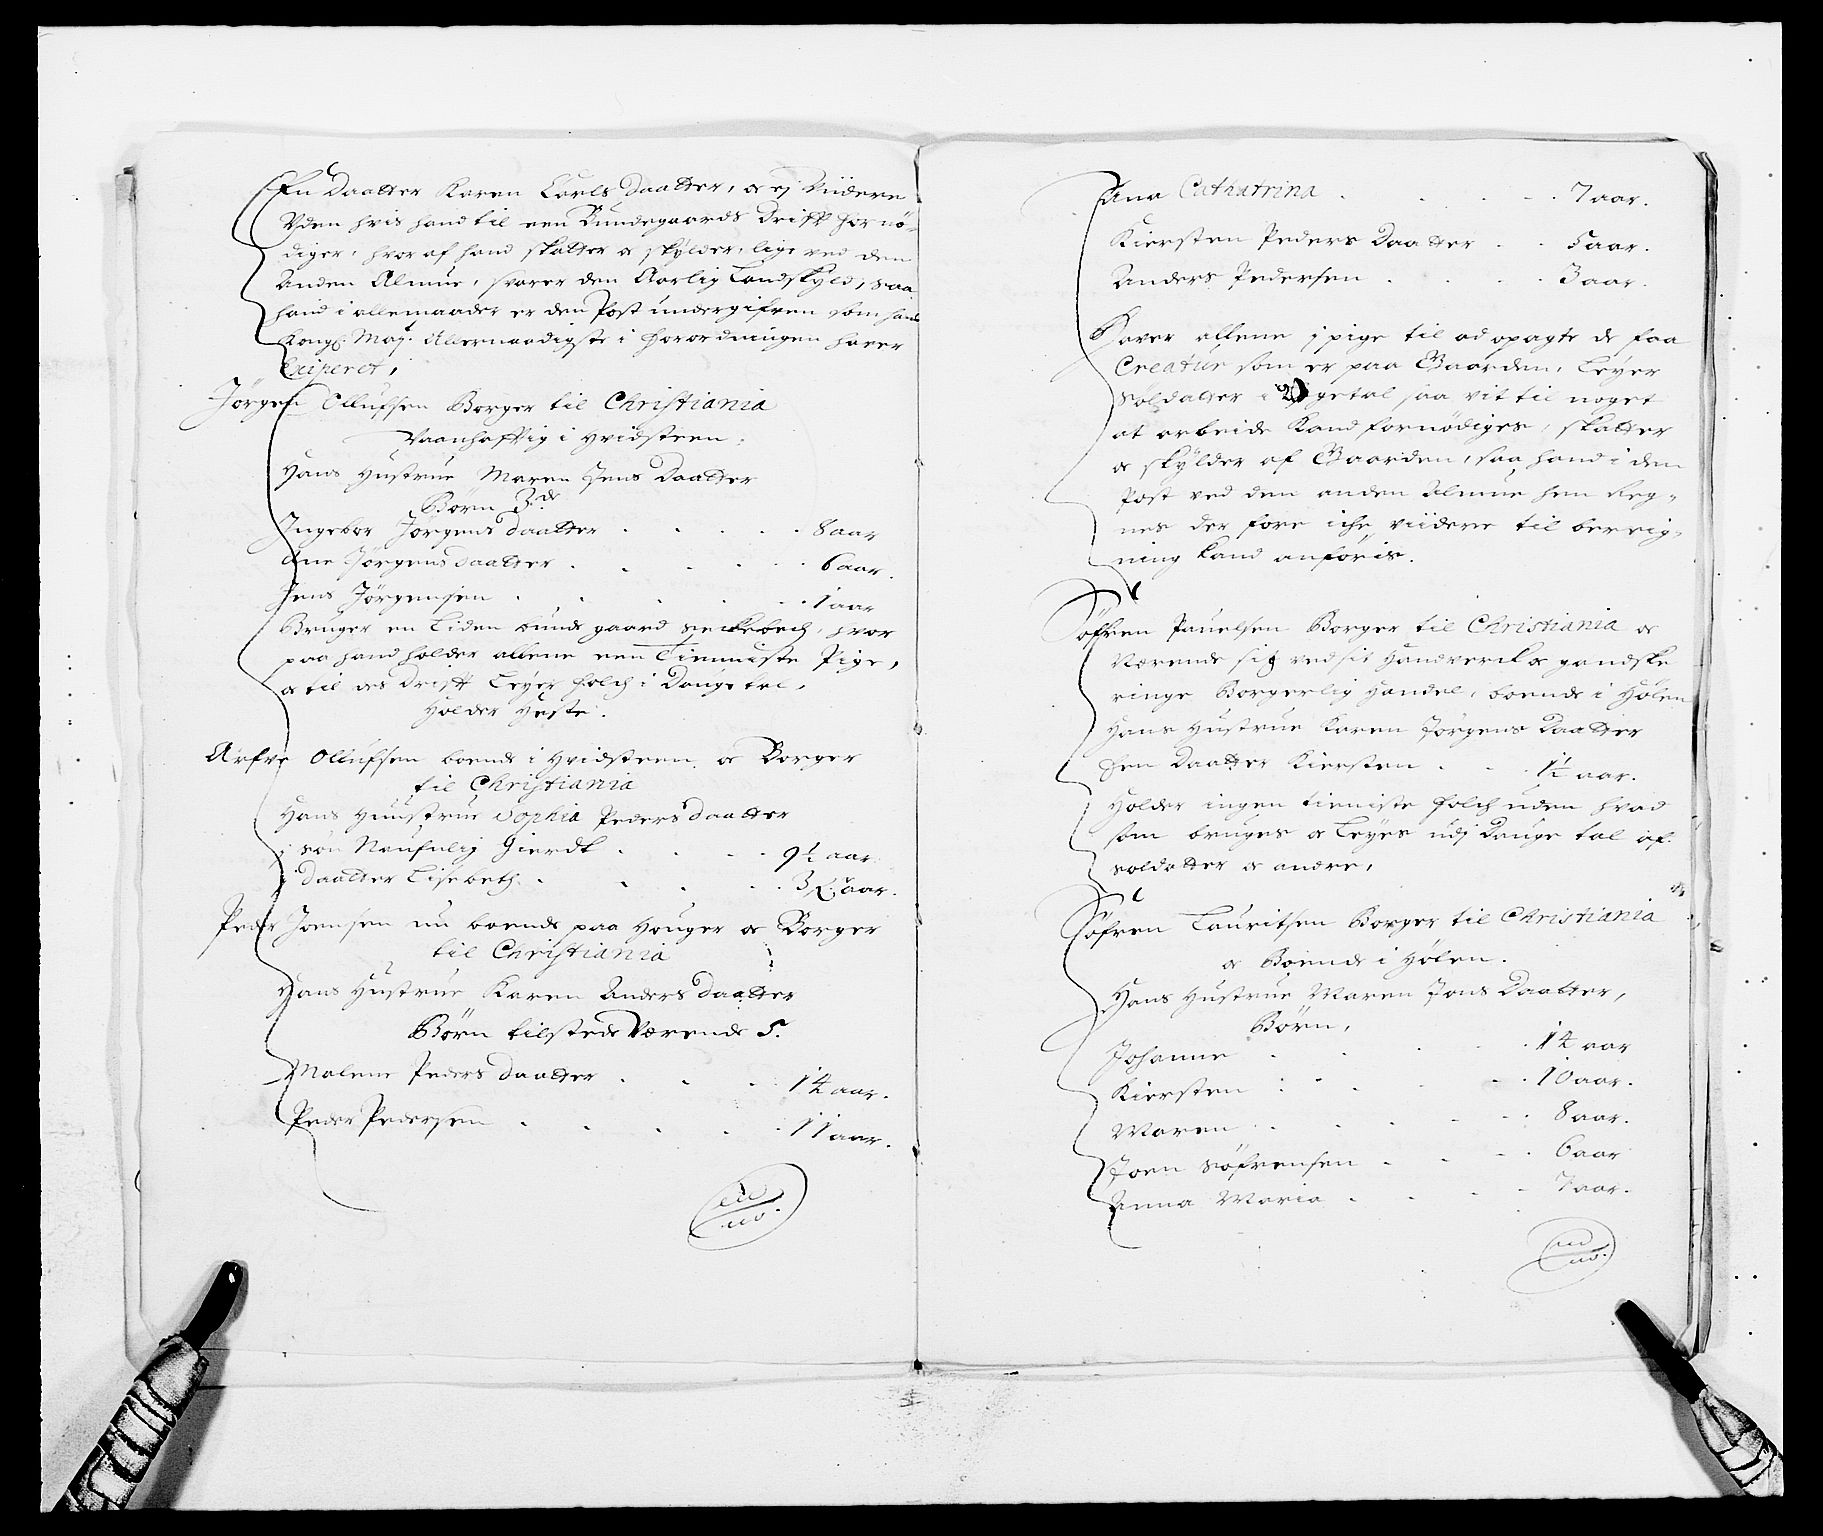 En Daatter Karen Carls Daatter, oc ej Viidere
Uden hvis hand til een Bundegaards Drifft for nø-
diger, hvor af hand skatter oc skylder, lige ved den
Anden Almue, svarer den Aarlig Landskyld, saa
hand i allemaader er den Post undergifven som hans
Kongl: Majt. Allernaadigste i forordningen hafver
Jørgen Ollufsen Borger til Christiania
Vaanhafftig i Hvidsteen.
Hans Hustrue Maren Jens Daatter
Børn 3de
Ingebor Jørgens daatter . . . . 8 aar
Ane Jørgens daatter . . . . . 6 aar.
Jens Jørgensen . . . . . 1 aar
Bruger en Liden bunde gaard , hvor
paa hand holder allene een Tienniste Pige,
oc til des Drifft Leyer folch i Dauge tal.
Holder Heste.
Arfve Ollufsen boende i Hvidsteen oc Borger
til Christiania
Hans Huustrue Sophia Peders daatter
j søn Naufnlig Gierdt . . . . 9½ aar
j daatter Lisebeth . . . . . 3 aar.
Peder Joensen nu boende paa Houger oc Borger
til Christiania
Hans Hustrue Karen Anders daatter
Børn tilstede Værende 5.
Malene Peders daatter . . . 14 aar.
Peder Pedersen . . . . . 11 aar.
Ana Cathatrina . . . . . 7 aar.
Kiersten Peders Daatter . . 5 aar.
Anders Pedersen . . . . 3 aar.
Haver allene j pige til ad opagte de faa
Creatur som er paa Gaarden, Leyer
Soldatter i getal saa vit til noget
at arbeide kand fornødiges, skatter
oc skylder af Gaarden, saa hand i den
Post ved den anden Almue hen Reg-
nes der fore iche viidere til bereig-
ning kand anføris.
Søfren Pauelsen Borger til Christiania oc
Nærende sig ved sit Handverck oc gandske
ringe Borgerlig Handel, boende i Hølen
Hans Hustrue Karen Jørgens Daatter
Een Daatter Kiersten . . 1½ aar.
Holder ingen tieniste folch uden hvad
som bruges oc Leyes udj Dauge tal af
soldatter oc andre,
Søfren Lauritsen Borger til Christiania
oc Boende i Hølen.
Hans Hustrue Maren Jens Daatter,
Børn,
Johanne . . . . . 14 aar
Kiersten . . . . . 10 aar.
Maren . . . . . . 8 aar.
Joen Søfrensen . . . . 6 aar
Anna Maria . . . . . 7 aar.